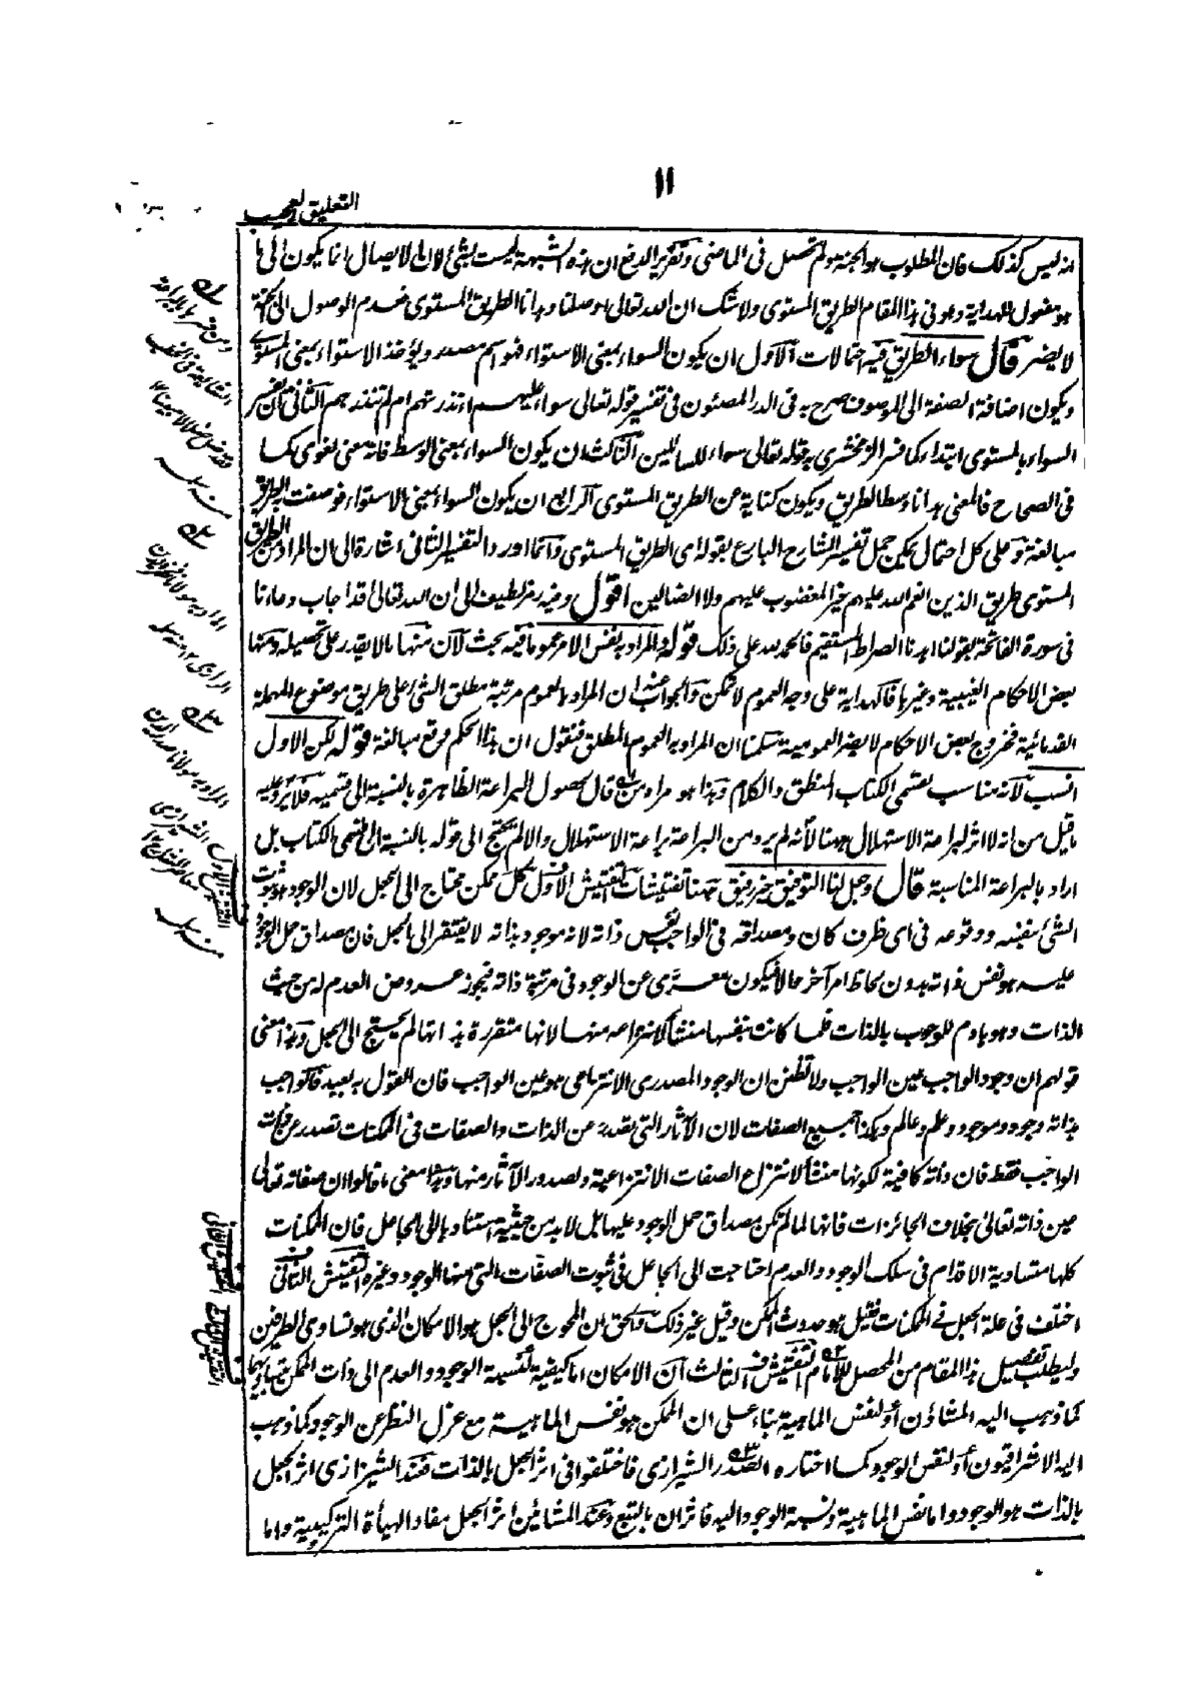 ١١
التعليق العجيب
انه ليس كذلك فان المطلوب هو الجنة ولم تحصل فى الماضى وتقرير الدفع ان هذه الشبهة ليست بشئ لان الايصال انما يكون الى ما
هو مفعول للهداية وهو فى هذا المقام الطريق المستوى ولا شك ان الله تعالى اوصلنا وهدانا الطريق المستوى فعدم الوصول الى الجنة
لا يضر قال سواء الطريق فيه احتمالات الاول ان يكون السواء بمعنى الاستواء فهو اسم مصدر ويؤخذ الاستواء بمعنى المستوى
ويكون اضافة الصفة الى الموصوف صرح به فى الدر المصئون فى تفسير قوله تعالى سواء عليهم ءانذرتهم ام لم تنذرهم الثانى ان يفسر
السواء بالمستوى ابتداء كما فسر الزمخشرى به قوله تعالى سواء للسائلين الثالث ان يكون السواء بمعنى الوسط فانه معنى لغوى كما
فى الصحاح فالمعنى هدانا وسط الطريق ويكون كناية عن الطريق المستوى الرابع ان يكون السواء بمعنى الاستواء فوصفت به الطريق
مبالغة وعلى كل احتمال يمكن حمل تفسير الشارح البارع بقوله اى الطريق المستوى وانما اورد التفسير الثانى اشارة الى ان المراد من الطريق
المستوى طريق الذين انعم الله عليهم غير المغضوب عليهم ولا الضالين اقول وفيه رمز لطيف الى ان الله تعالى قد اجاب دعاءنا
فى سورة الفاتحة بقولنا اهدنا الصراط المستقيم فالحمد لله على ذلك قوله والمراد به نفس الامر عموما فيه بحث لان منها ما لا يقدر على تحصيله ومنها
بعض الاحكام الغيبية وغيرها فالهداية على وجه العموم لا تمكن والجواب عنه ان المراد بالعموم مرتبة مطلق الشئ على طريق موضوع المهملة
القدمائية فخروج بعض الاحكام لا يضر العمومية سلمنا ان المراد به العموم المطلق فنقول ان هذا الحكم وقع مبالغة قوله لكن الاول
انسب لانه مناسب بقسمى الكتاب المنطق والكلام وهذا هو مراد من قال لحصول البراعة الظاهرة بالنسبة الى قسميه فلا يرد عليه
ما قيل من انه لا اثر لبراعة الاستهلال ههنا لانه لم يرد من البراعة براعة الاستهلال والا لم يحتج الى قوله بالنسبة الى قسمى الكتاب بل
اراد بالبراعة المناسبة قال وجعل لنا التوفيق خير رفيق ههنا تفتيشات التفتيش الاول كل ممكن محتاج الى الجعل لان الوجود هو ثبوت
الشئ بنفسه ووقوعه فى اى ظرف كان ومصداقه فى الواجب نفس ذاته لانه موجود بذاته لا يفتقر الى الجعل فان مصداق حمل الوجود
عليه هو نفس ذاته بدون لحاظ امر آخر والا فيكون معرى عن الوجود فى مرتبة ذاته فيجوز عروض العدم له من حيث
الذات وهو هادم للوجوب بالذات فلما كانت بنفسها منشأ لانتزاعه منها لانها متقررة بذاتها لم يحتج الى الجعل وهذا معنى
قولهم ان وجود الواجب عين الواجب ولا تظنن ان الوجود المصدرى الانتزاعى هو عين الواجب فان القول به بعيد فالواجب
بذاته وجود وموجود وعلم وعالم وهكذا جميع الصفات لان الآثار التى بقدر من الذات والصفات فى الممكنات تصدر عن ذات
الواجب فقط فان ذاته كافية لكونها منشأ لانتزاع الصفات الانتزاعية ولصدور الآثار منها وهذا معنى ما قالوا ان صفاته تعالى
عين ذاته تعالى بخلاف الجائزات فانها لما لم تكن مصداق حمل الوجود عليها بل لا بد من حيثية استنادها الى الجاعل فان الممكنات
كلها متساوية الاقدام فى سلك الوجود والعدم احتاجت الى الجاعل فى ثبوت الصفات التى منها الوجود وغيره التفتيش الثانى
اختلف فى علة الجعل فى الممكنات فقيل هو حدوث الممكن وقيل غير ذلك والحق ان المحوج الى الجعل هو الامكان الذى هو تساوى الطرفين
وليطلب تفصيل هذا المقام من المحصل للامام التفتيش الثالث ان الامكان اما كيفية لنسبة الوجود والعدم الى ذات الممكن
كما ذهب اليه المشاؤن او لنفس الماهية بناء على ان الممكن هو نفس الماهية مع عزل النظر عن الوجود كما ذهب
اليه الاشراقيون او لنفس الوجود كما اختاره الصدر الشيرازى فاختلفوا فى اثر الجعل بالذات فعند الشيرازى اثر الجعل
بالذات هو الوجود واما نفس الماهية ونسبة الوجود اليه فاثران بالتبع وعند المشائين اثر الجعل مفاد الهيأة التركيبية واما
المراد به مولانا
الرازى ١٢ منه
المراد به مولانا صدر الدين
الشيرازى
التفتيش الاول
التفتيش الثانى
التفتيش الثالث